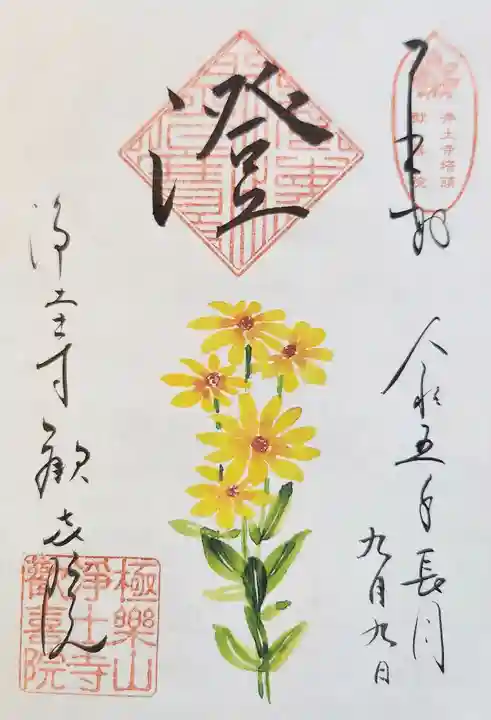 奉拝
浄土寺塔頭
歓喜院
令和五年長月
九月九日
澄
浄土寺歓喜院
極樂山
浄土寺
歡喜院